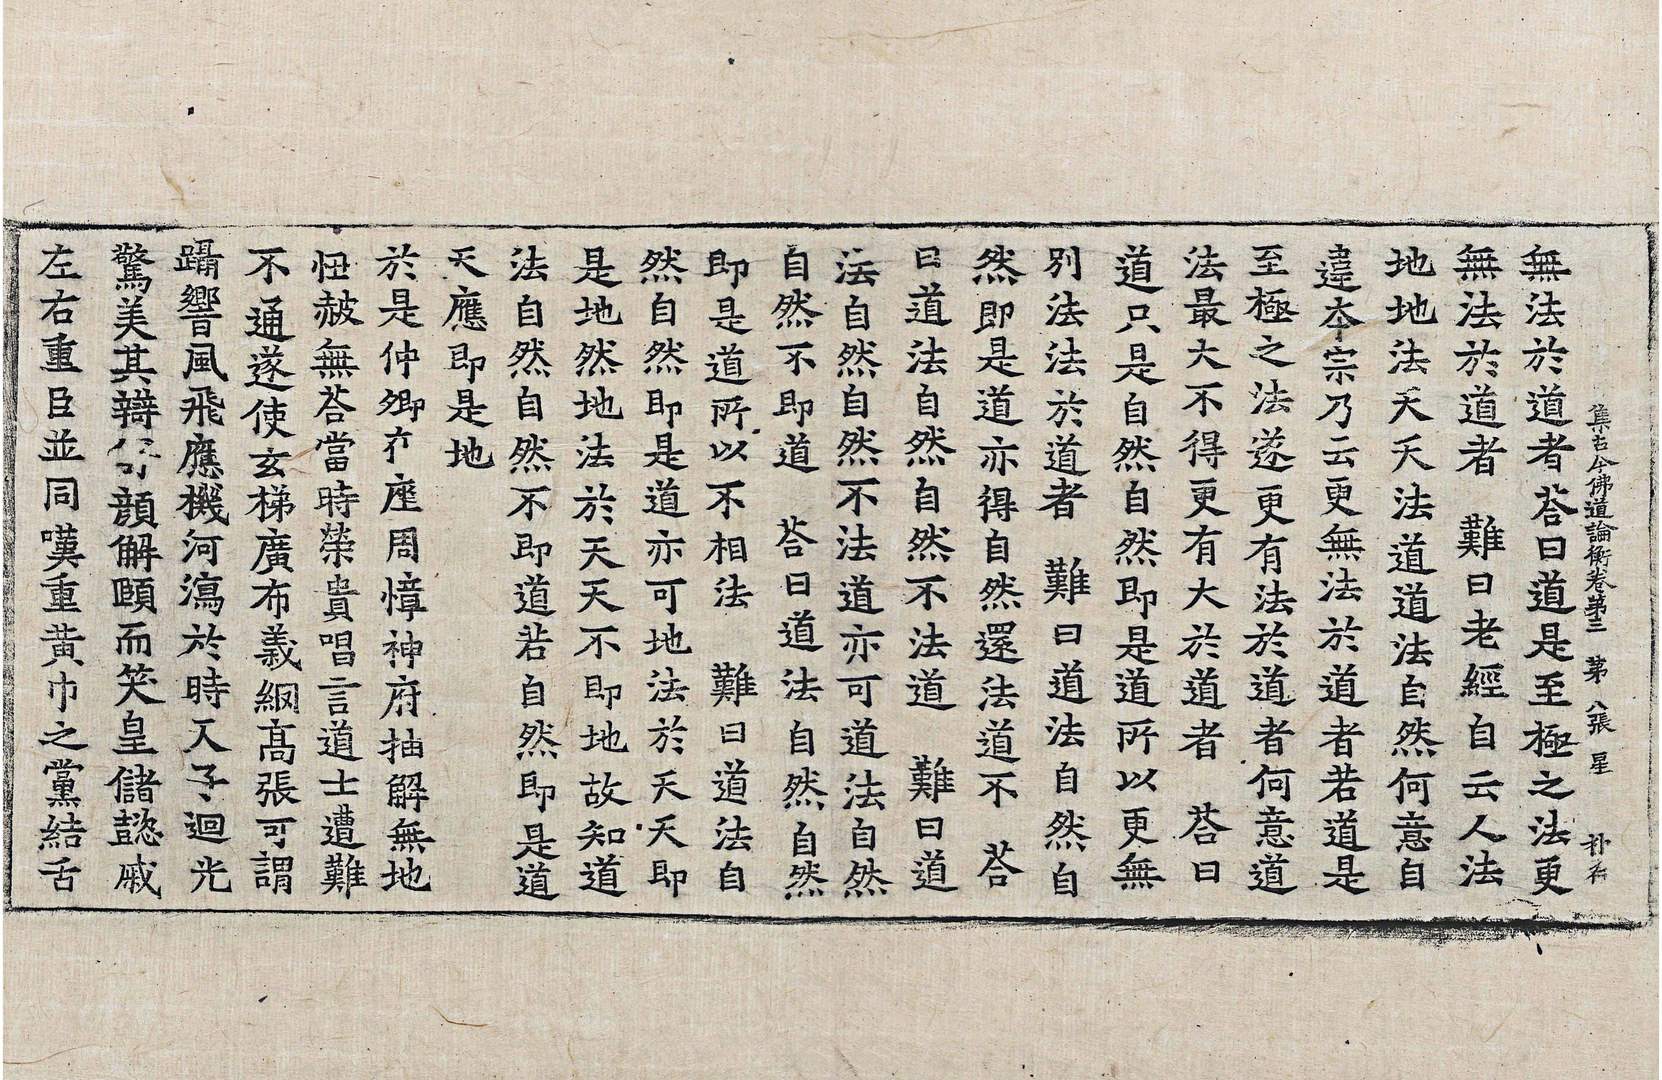 集古今佛道論衡卷第三 第八張 星
無法於道者荅曰道是至極之法更
無法於道者 難曰老經自云人法
地地法天天法道道法自然何意自
違本宗乃云更無法於道者若道是
至極之法遂更有法於道者何意道
法最大不得更有大於道者 荅曰
道只是自然自然即是道所以更無
別法法於道者 難曰道法自然自
然即是道亦得自然還法道不 荅
曰道法自然自然不法道 難曰道
法自然自然不法道亦可道法自然
自然不即道 荅曰道法自然自然
即是道所以不相法 難曰道法自
然自然即是道亦可地法於天天即
是地然地法於天天不即地故知道
法自然自然不即道若自然即是道
天應即是地
於是仲卿在座周慞神府抽解無地
忸赧無荅當時榮貴唱言道士遭難
不通遂使玄梯廣布義網高張可謂
躡響風飛應機河瀉於時天子迴光
驚美其辯方顏解頤而笑皇儲懿戚
左右重臣並同嘆重黃巾之黨結舌